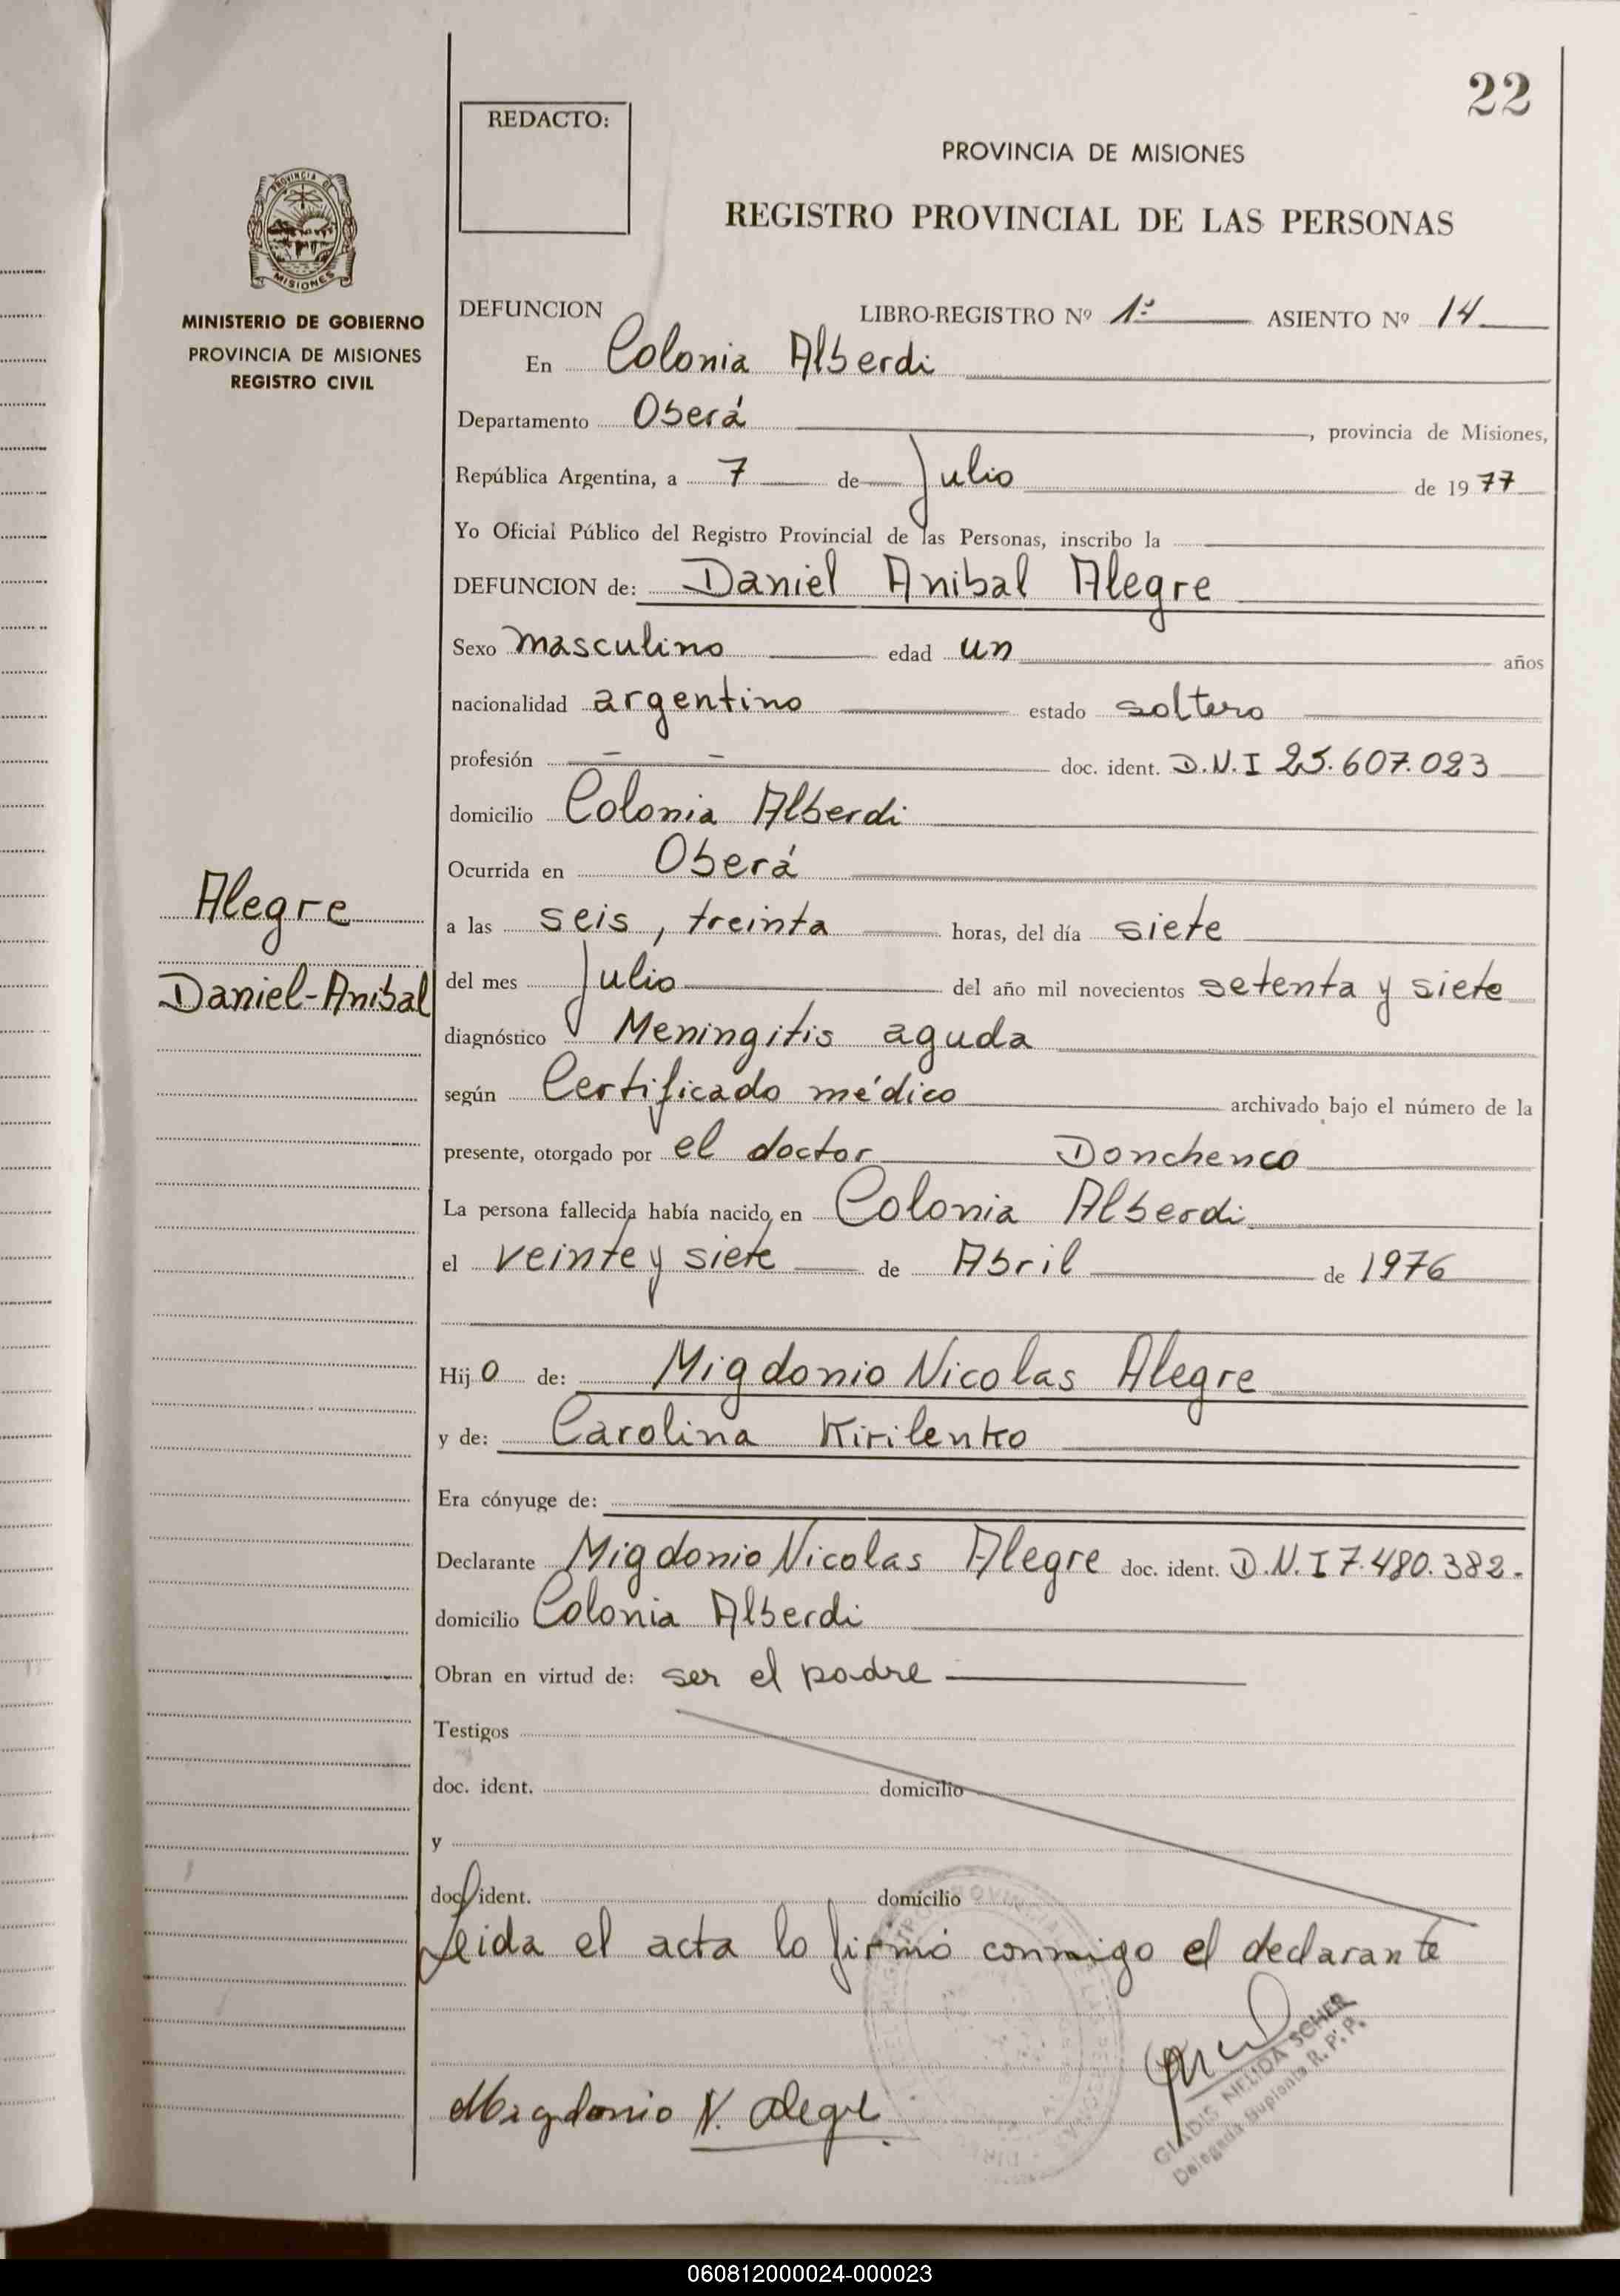 22
REDACTO:
PROVINCIA DE MISIONES
REGISTRO PROVINCIAL DE LAS PERSONAS
PROVINCIA DE
MISIONES
MINISTERIO DE GOBIERNO
PROVINCIA DE MISIONES
REGISTRO CIVIL
DEFUNCION LIBRO-REGISTRO Nº 1º ASIENTO Nº 14
En Colonia Alberdi
Departamento Oberá, provincia de Misiones,
República Argentina, a 7 de Julio de 1977
Yo Oficial Público del Registro Provincial de las Personas, inscribo la
DEFUNCION de: Daniel Anibal Alegre
Sexo masculino edad un años
nacionalidad argentino estado soltero
profesión — — doc. ident. D.N.I 25.607.023
domicilio Colonia Alberdi
Ocurrida en Oberá
Alegre
Daniel-Anibal
a las seis, treinta horas, del día siete
del mes Julio del año mil novecientos setenta y siete
diagnóstico Meningitis aguda
según Certificado médico archivado bajo el número de la
presente, otorgado por el doctor Donchenco
La persona fallecida había nacido en Colonia Alberdi
el veinte y siete de Abril de 1976
Hijo de: Migdonio Nicolas Alegre
y de: Carolina Kirilenko
Era cónyuge de:
Declarante Migdonio Nicolas Alegre doc. ident. D.N.I 7.480.382.
domicilio Colonia Alberdi
Obran en virtud de: ser el padre
Testigos
doc. ident. domicilio
y
doc. ident. domicilio
Leida el acta lo firmó conmigo el declarante
Migdonio N. Alegre
GLADIS NELIDA SCHER
Delegada Suplente R. P. P.
060812000024-000023